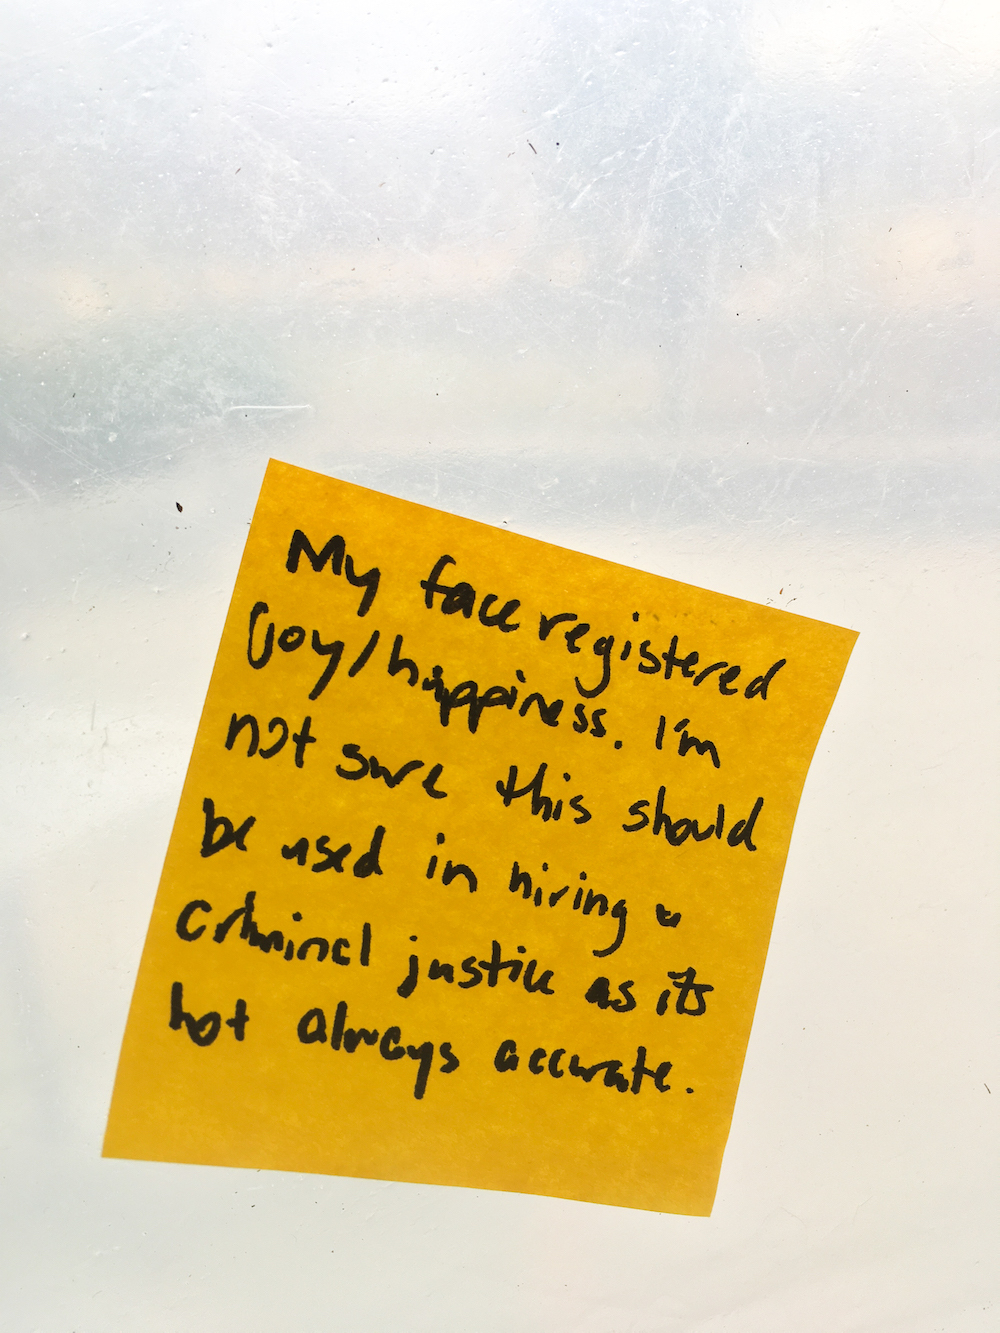 My face registered
joy/happiness. I'm
not sure this should
be used in hiring or
criminal justice as its
not always accurate.